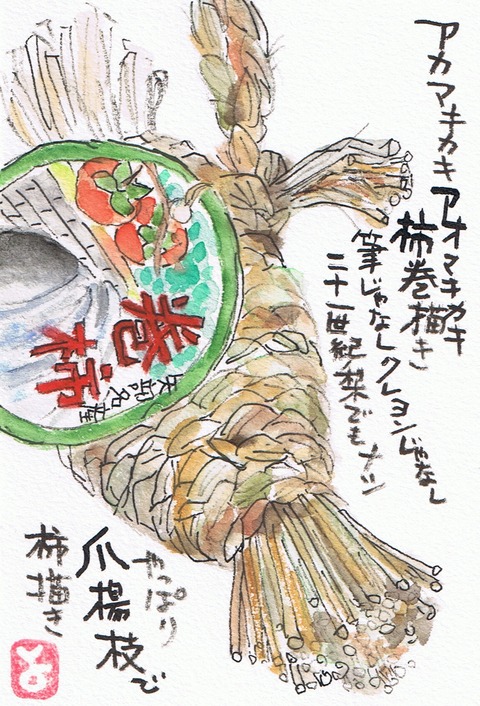 アカマキカキ アオマキカキ
柿巻描き
筆じゃなしクレヨンじゃなし
二十一世紀梨でもナシ
巻柿
矢部名産
やっぱり
爪楊枝で
柿描き